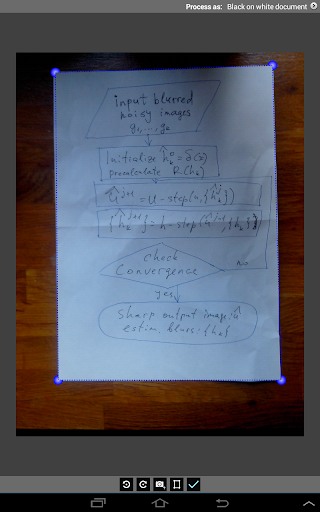 Process as: Black on white document
input blurred
noisy images
Initialize
precalculate R(h_k)
û^{j+1} = u-step(
h-step(
check
Convergence
No
yes
Sharp output image: û
estim. blurs: